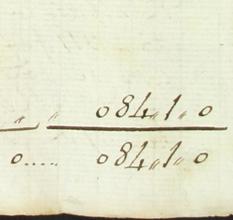 〃 〃 084〃1〃0
0.... 084〃1〃0